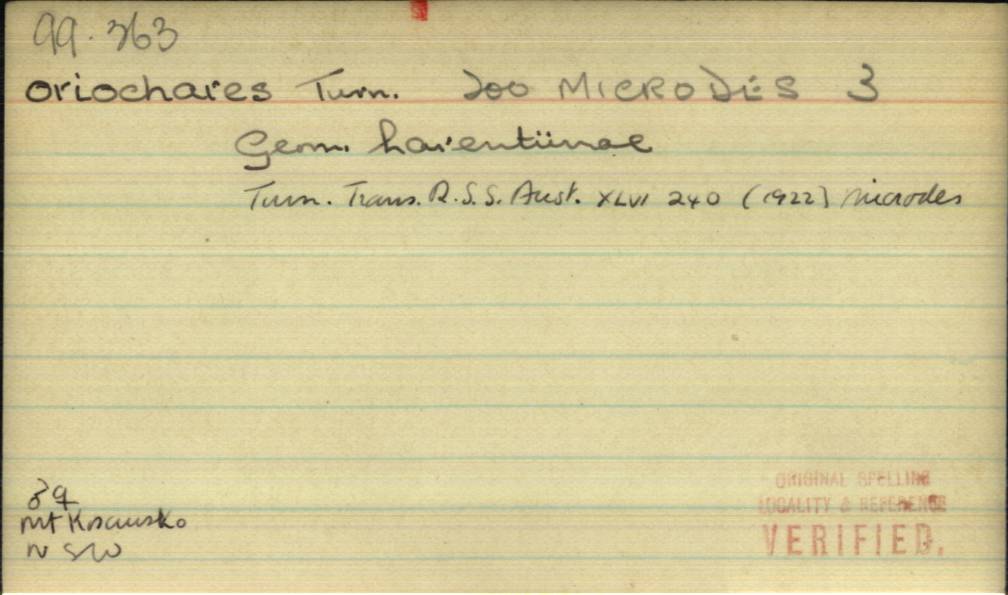 99.363
oriochares Turn. 200 MICRODES 3
Geom. larentiinae
Turn. Trans. R.S.S. Aust. XLVI 240 (1922) Microdes
♂♀
Mt Kosciusko
N SW
ORIGINAL SPELLING
LOCALITY & REFERENCE
VERIFIED.